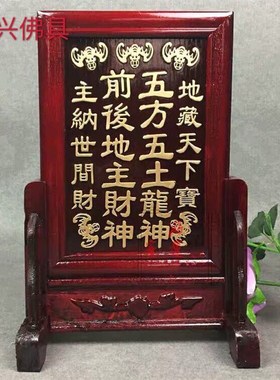 兴佛具
地藏天下寶
五方五土龍神
前後地主財神
主納世間財